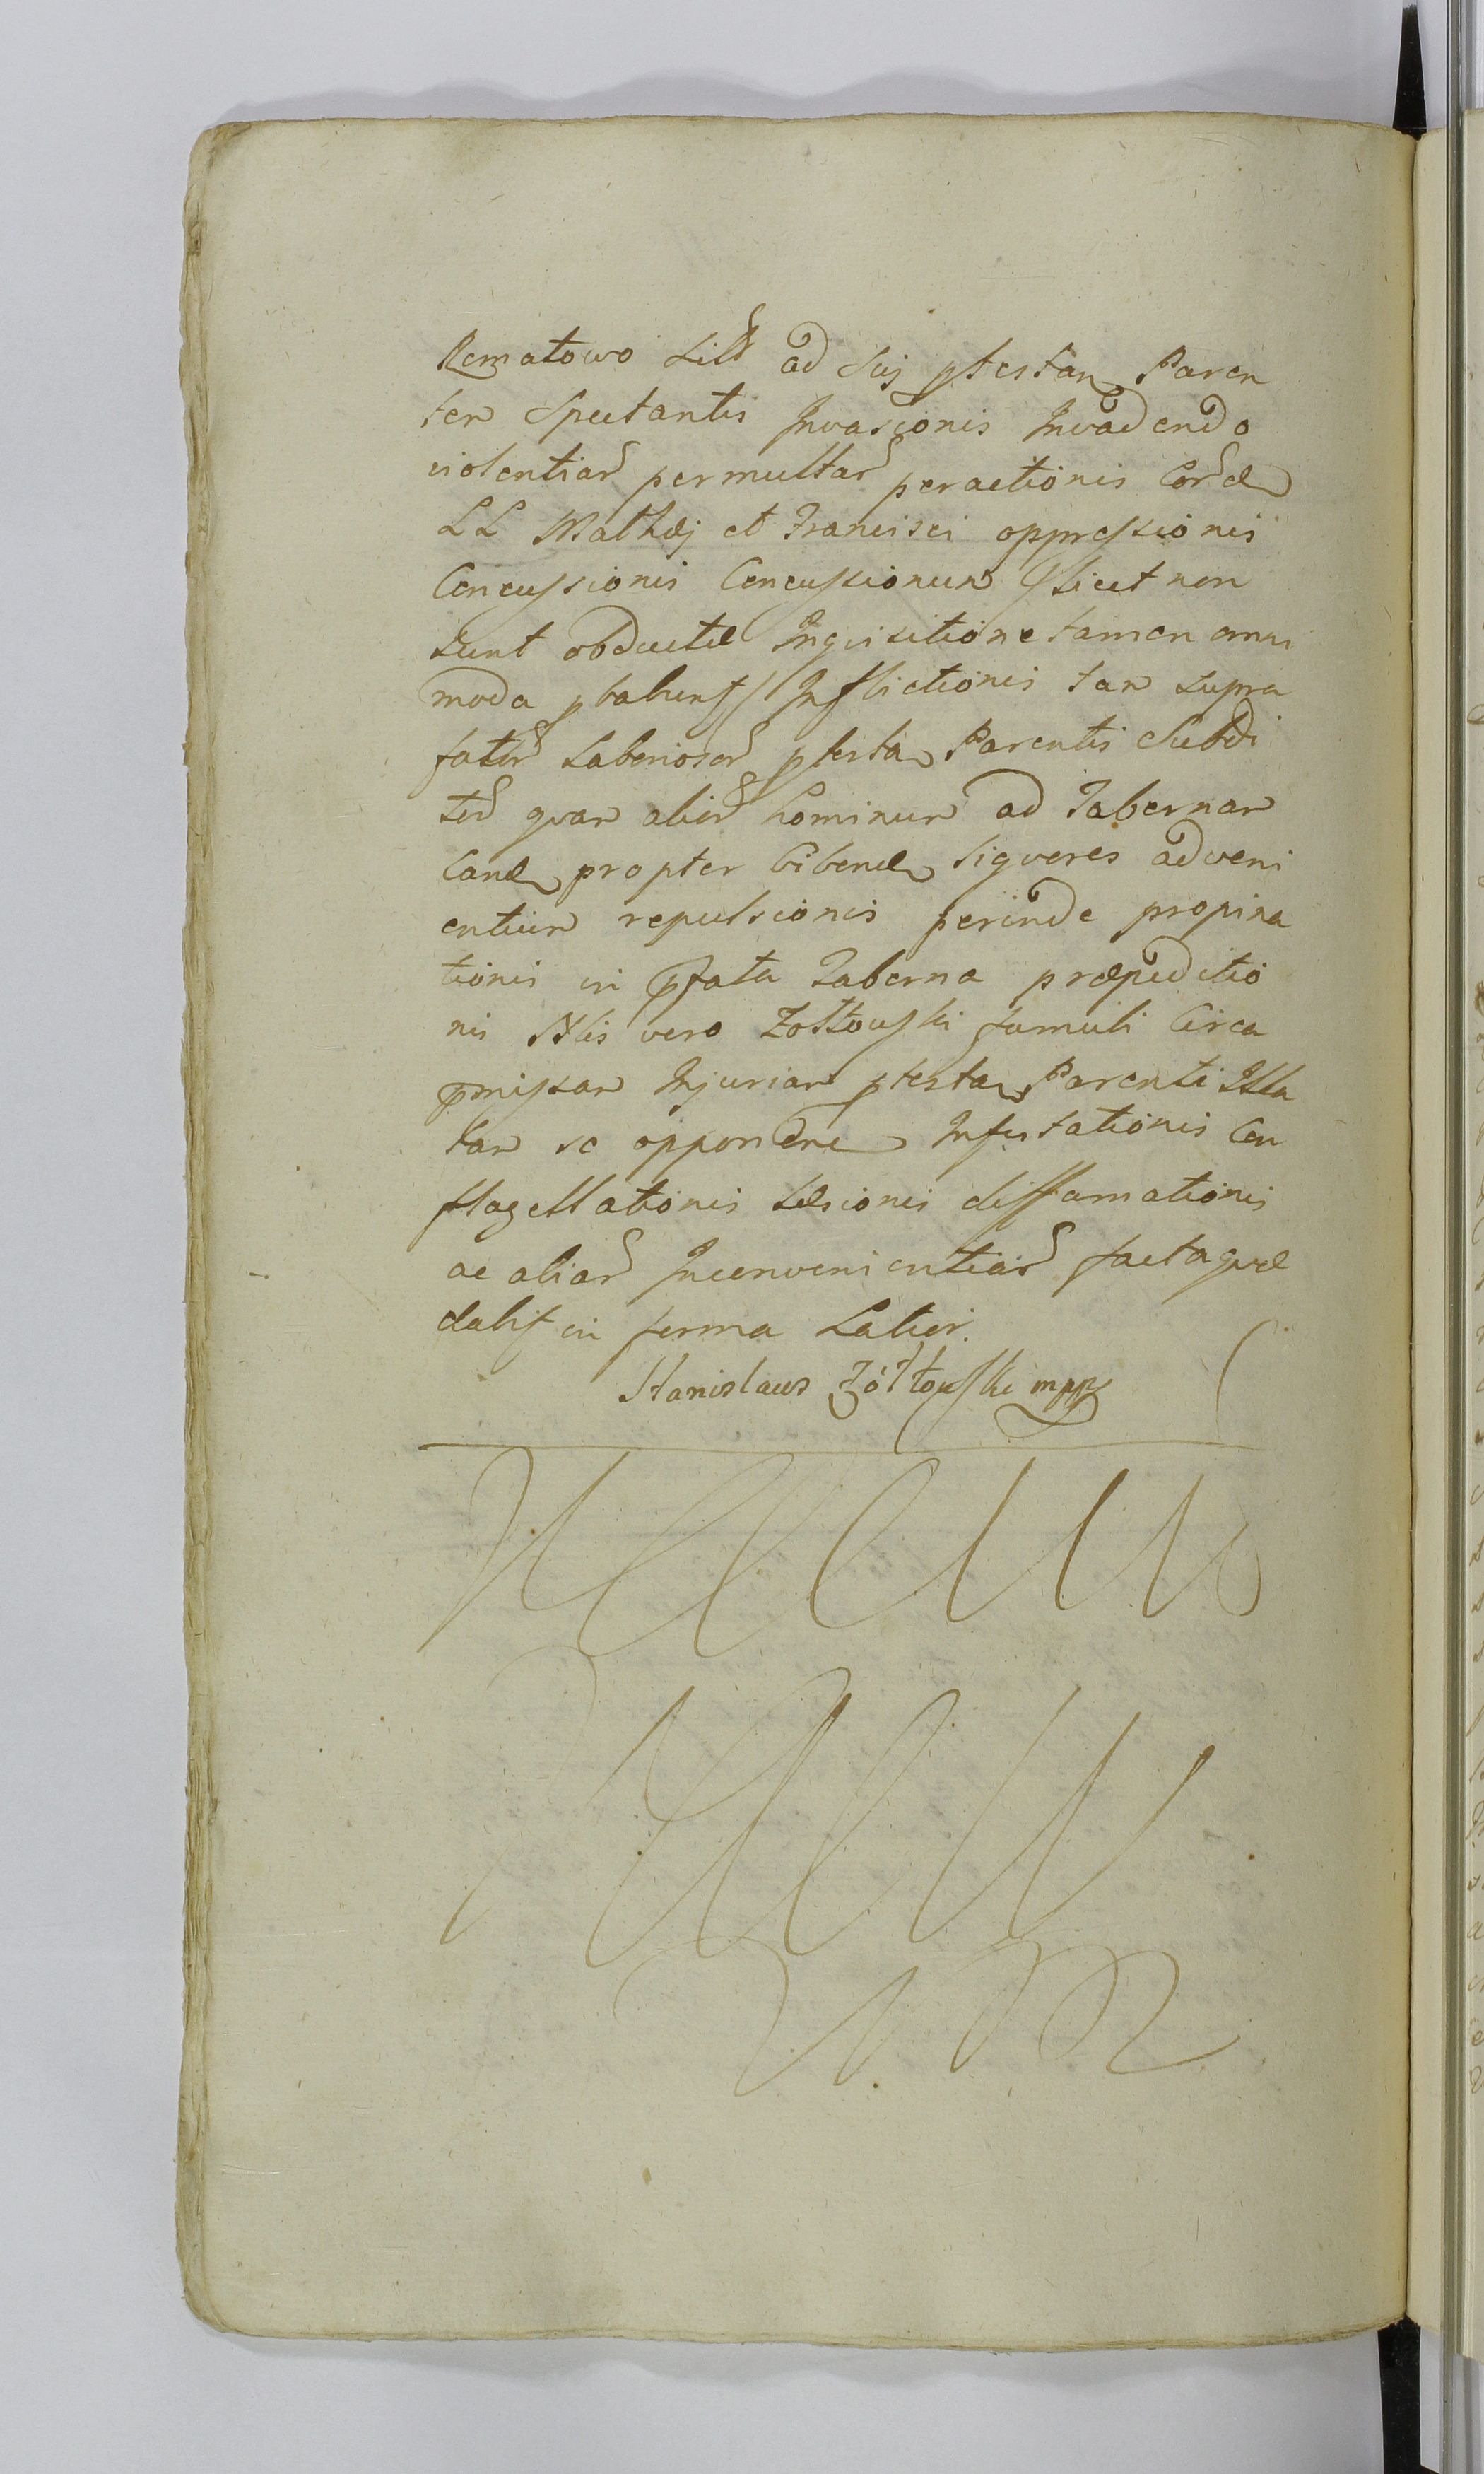 Rematowo sitt ad Suj ptestan Paren
tem Spectantis Invasionis Invadendo
violentiar permultar peractionis Cordem
LL Mathæj et Francisci oppressionis
Concussionis Concussionum sicut non
sunt obductæ Inquisitione tamen omni
moda pbabunt Inflictionis tam supra
fator Laboriosor ptestan Parentis Subdi
tor quam alior hominum ad Tabernam
eand propter bibend liqvores adveni
entium repulsionis perinde propina
tionis in pfata Taberna præpeditio
nis Nlis vero Zołtowski famuli Circa
pmissam Injuriam ptestan Parenti Illa
tam se opponen Infestationis Con
flagellationis Læsionis diffamationis
ac aliar Inconvenientiar factaque
dabit in forma Latior.
Stanislaus Żółtowski mpp